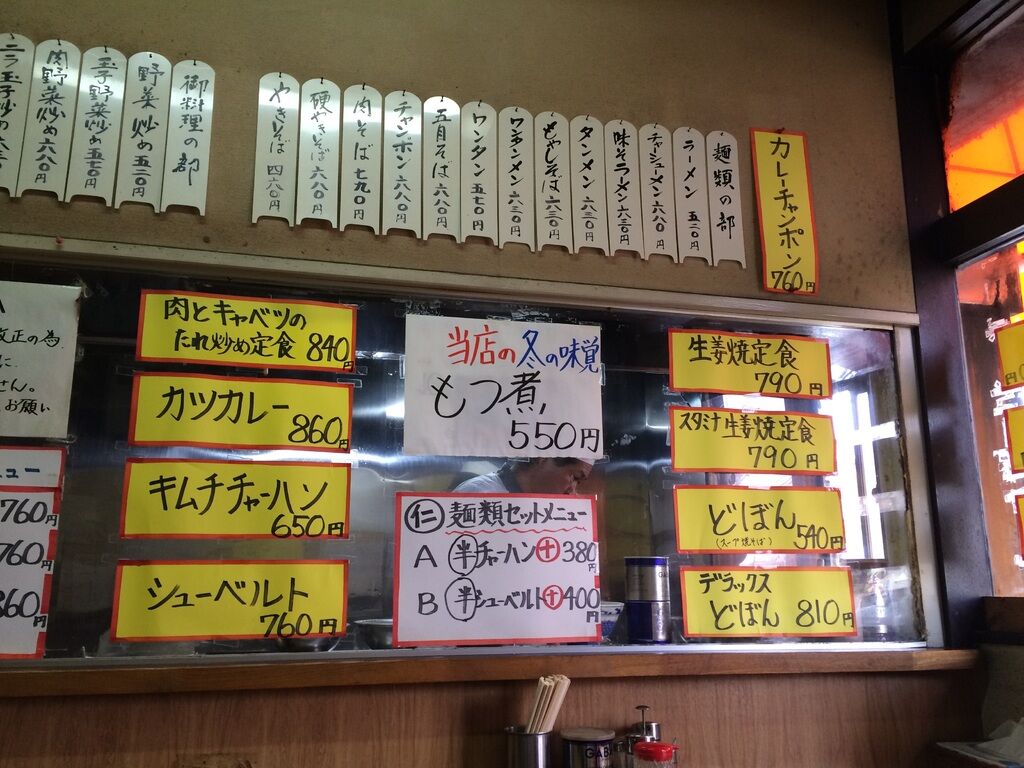 麺類の部
ラーメン 五二〇円
チャーシューメン 六八〇円
味そラーメン 六三〇円
タンメン 六三〇円
もやしそば 六三〇円
ワンタンメン 六三〇円
ワンタン 五七〇円
五月そば 六八〇円
チャンポン 六八〇円
肉そば 七九〇円
硬やきそば 六八〇円
やきそば 四六〇円
御料理の部
野菜炒め 五二〇
玉子野菜炒め 五七〇
肉野菜炒め 六八〇円
ニラ玉子炒め
カレーチャンポン
760円
肉とキャベツの
たれ炒め定食 840円
カツカレー
860円
キムチチャーハン
650円
シューベルト
760円
当店の冬の味覚
もつ煮
550円
仁 麺類セットメニュー
A 半チャーハン十380円
B 半シューベルト十400円
生姜焼定食
790円
スタミナ生姜焼定食
790円
どぼん
(スープ焼そば)
540円
デラックス
どぼん 810円
改正の為
に
さん。
お願い
ュー
760円
760円
860円
GABAN